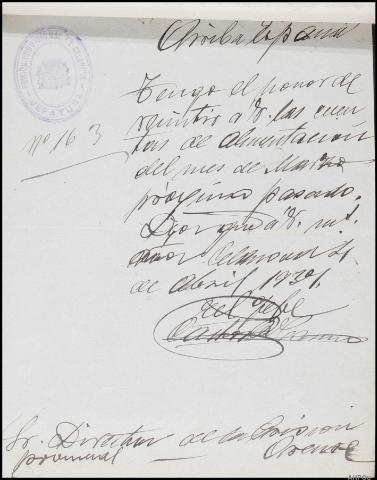 Arriba España
JEFATURA
Nº 163
Tengo el honor de
remitir a V. las cuen
tas de alimentación
del mes de Marzo
próximo pasado.
Dios guarde a V. m.s
años Celanova 2
de Abril, 1939.
El Jefe
Sr. Director de la Prisión
provincial Orense